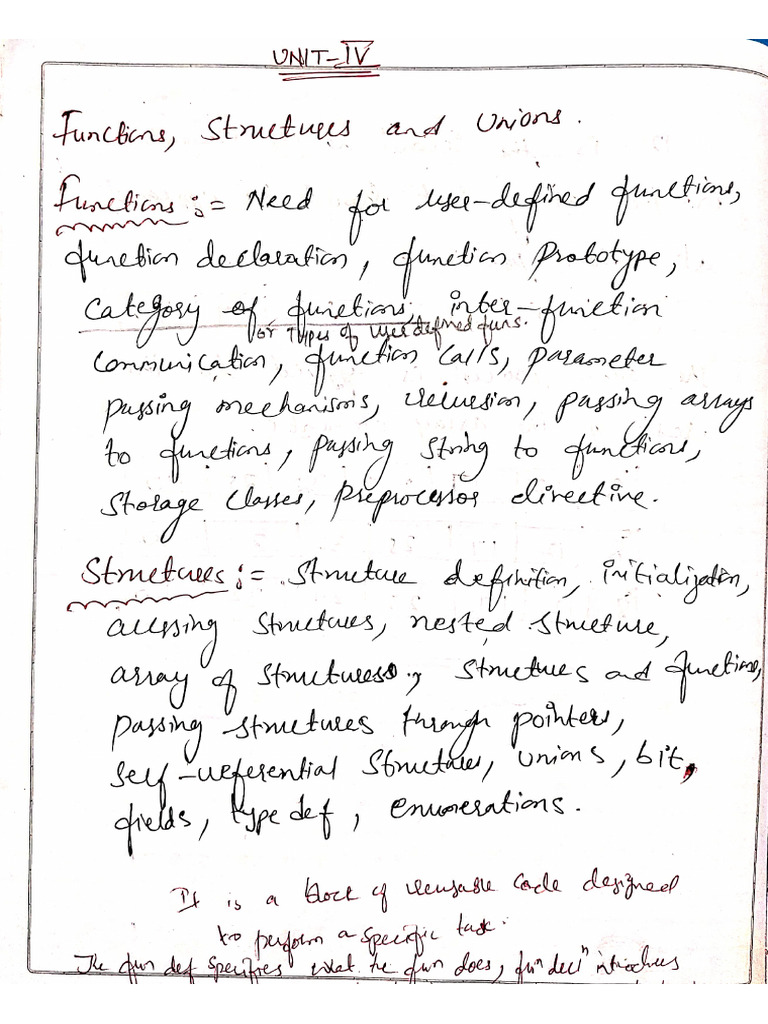 UNIT-IV
Functions, Structures and Unions.
Functions := Need for user-defined functions,
function declaration, function prototype,
category of functions, inter-function
or Types of User defined funs.
Communication, function calls, parameter
passing mechanisms, recursion, passing arrays
to functions, passing string to functions,
storage classes, preprocessor directive.
Structures := Structure definition, initialization,
accessing structures, nested structure,
array of structures, structures and functions,
passing structures through pointers,
self-referential structures, unions, bit
fields, typedef, enumerations.
It is a block of reusable code designed
to perform a specific task.
The fun def specifies what the fun does, funⁿ declⁿ introduces